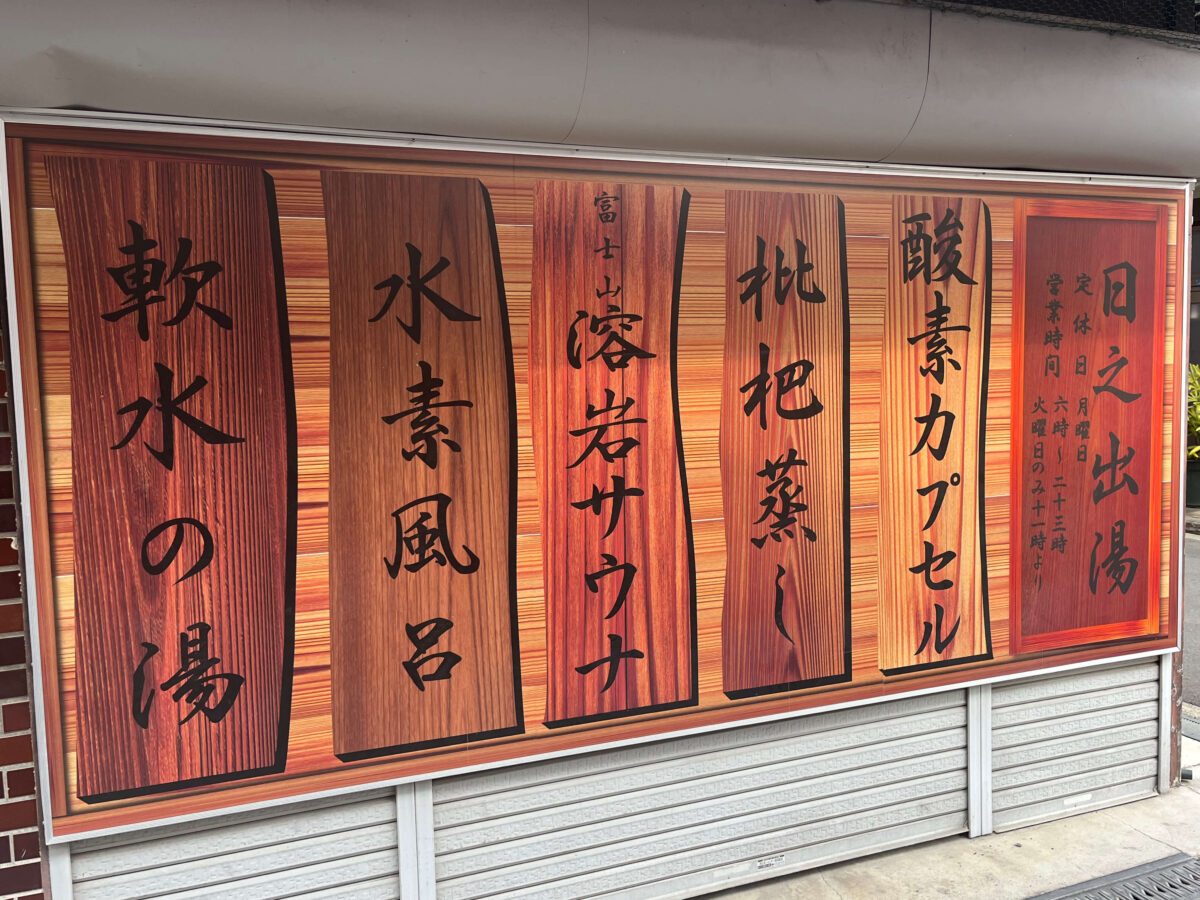 日之出湯
定休日 月曜日
営業時间 六時〜二十三時
火曜日のみ十一時より
酸素カプセル
枇杷蒸し
富士山溶岩サウナ
水素風呂
軟水の湯